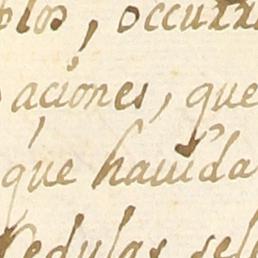 blos, occurr
aciones, que
que havida
Cedulas sell